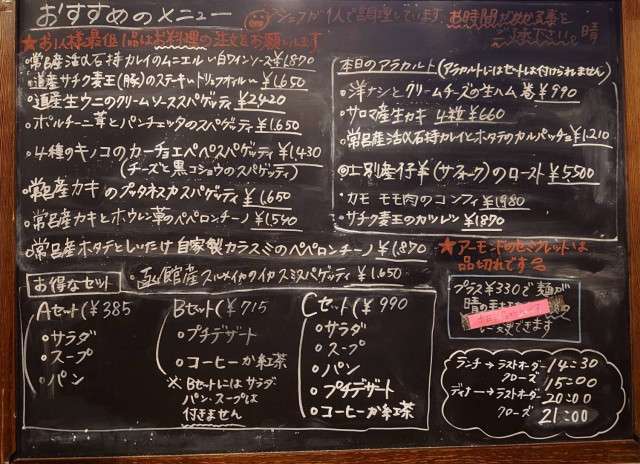 おすすめのメニュー
シェフが1人で調理しています。お時間
晴
★お1人様最低1品はお料理の注文をお願いします
・常呂産活〆石持カレイのムニエル 白ワインソース¥1,870
・道産サチク麦王(豚)のステーキトリュフオイル ¥1,650
・道産生ウニのクリームソーススパゲッティ ¥2420
・ポルチーニ茸とパンチェッタのスパゲッティ ¥1,650
・4種のキノコのカーチョエペペスパゲッティ ¥1,430
(チーズと黒コショウのスパゲッティ)
・常呂産カキのプッタネスカスパゲッティ ¥1,650
・常呂産カキとホウレン草のペペロンチーノ ¥1,540
・常呂産ホタテとしいたけ 自家製カラスミのペペロンチーノ ¥1,870
・函館産スルメイカのイカスミスパゲッティ ¥1,650
本日のアラカルト(アラカルトにはセットは付けられません)
・洋ナシとクリームチーズの生ハム巻 ¥990
・サロマ産生カキ 4粒 ¥660
・常呂産活〆石持カレイとホタテのカルパッチョ ¥1,210
◎士別産仔羊(サフォーク)のロースト ¥5,500
・カモ モモ肉のコンフィ ¥1,980
・サチク麦王のカツレツ ¥1,870
★アーモンドのセミフレットは
品切れです
お得なセット
Aセット(¥385
○サラダ
○スープ
○パン
Bセット(¥715
○プチデザート
○コーヒーか紅茶
※Bセットにはサラダ
パン・スープは
付きません
Cセット(¥990
○サラダ
○スープ
○パン
○プチデザート
○コーヒーか紅茶
プラス¥330で麺が
晴の手打
できます
ランチ→ラストオーダー 14:30
クローズ 15:00
ディナー→ラストオーダー 20:00
クローズ 21:00